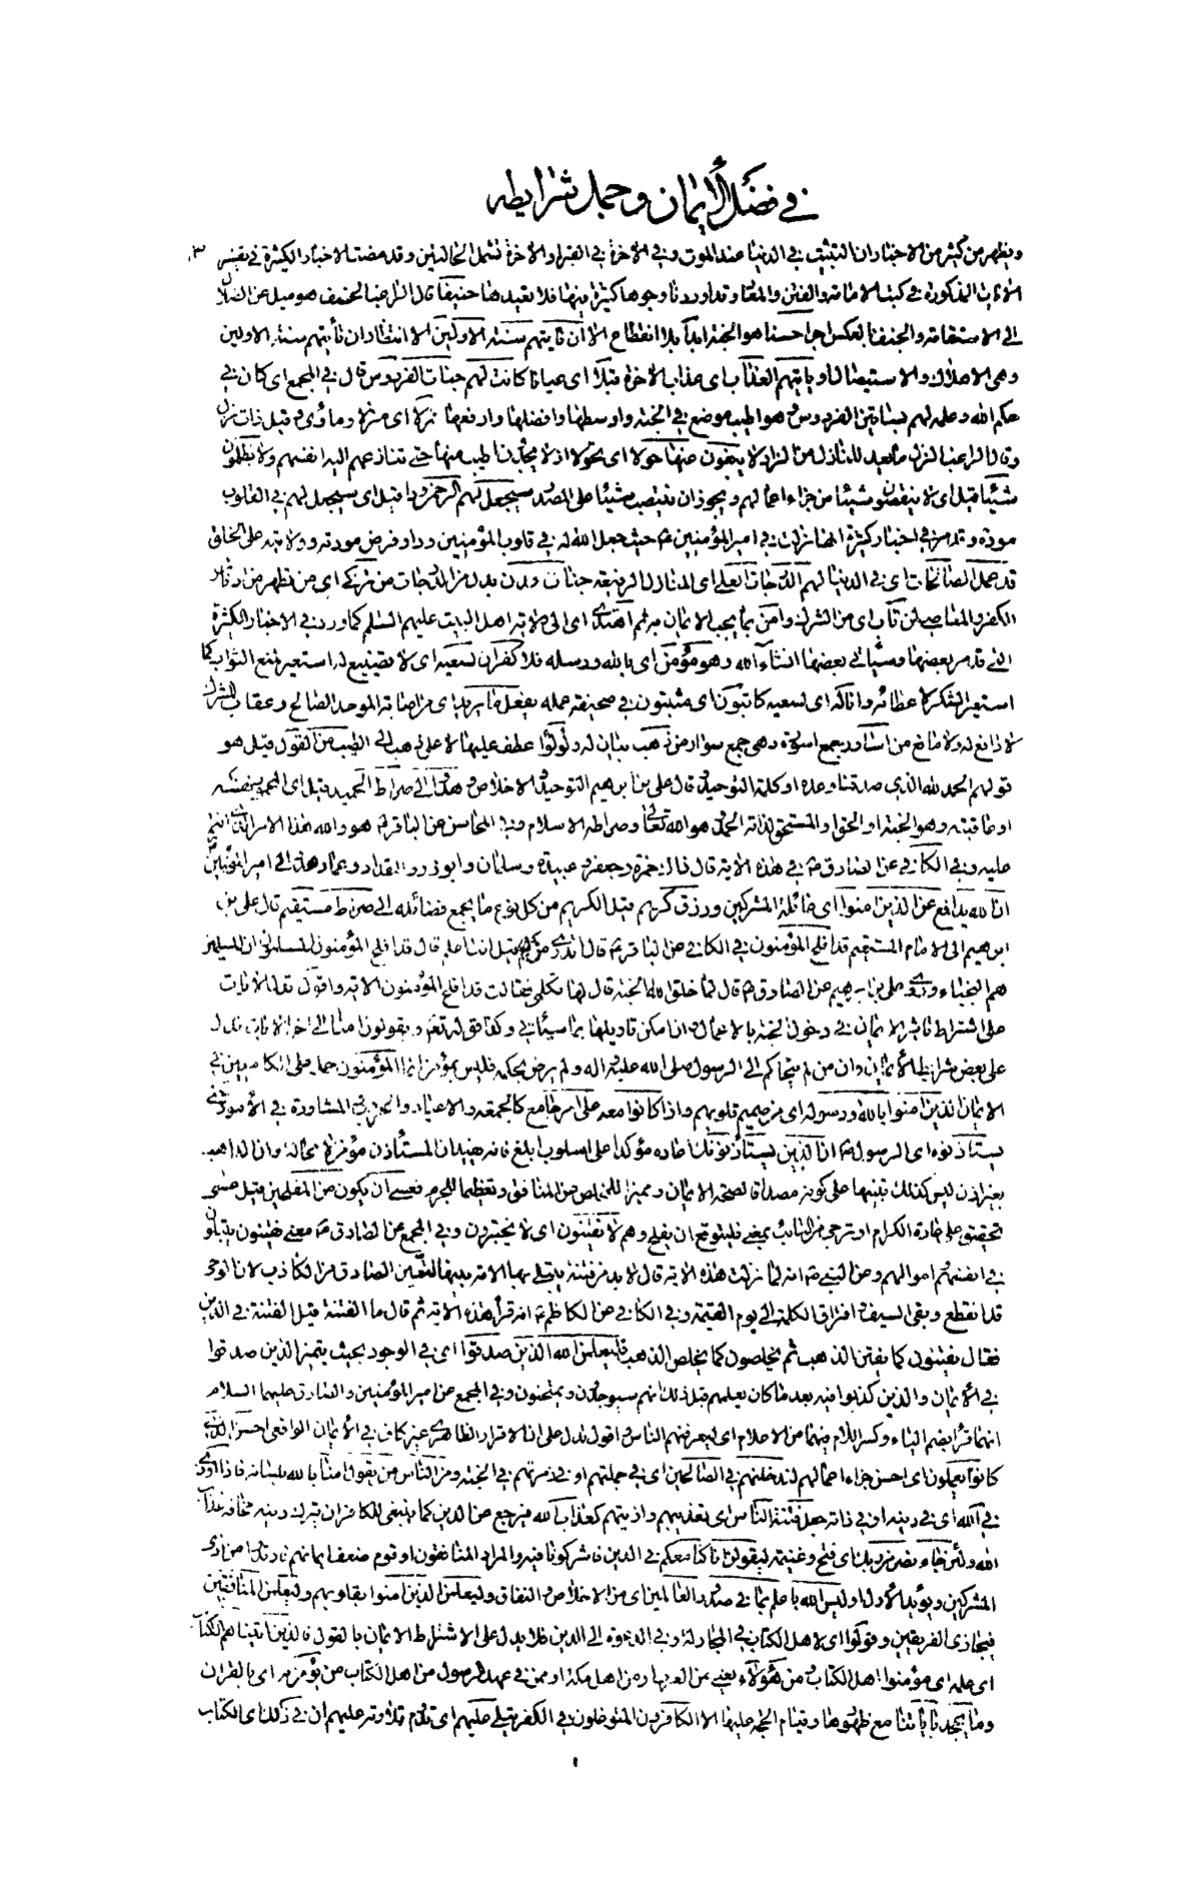 في فضل الايمان وجمل شرايطه
ويظهر من كثير من الاخبار ان التثبيت في الدنيا عند الموت وفي الاخرة في القبر او الاخرة تشمل الحالتين وقد مضت الاخبار الكثيرة في تفسير ٣
الايات المذكورة في كتب الامامة والفتن والمعاد وقد اوردنا وجوها كثيرة فيها فلا نعيدها حنيفا قال الراغب الحنف هو ميل عن الضلال
الى الاستقامة والجنف بالعكس اجرا حسنا هو الجنة ابدا بلا انقطاع الا ان تاتيهم سنة الاولين الا انتظار ان تأتيهم سنة الاولين
وهي الاهلاك والاستيصال او ياتيهم العذاب اي عذاب الاخرة قبلا اي عيانا كانت لهم جنات الفردوس قال في المجمع اي كان في
حكم الله وعلمه لهم بساتين الفردوس وهو اطيب موضع في الجنة واوسطها وافضلها وارفعها نزلا اي منزلا ومأوى وقيل ذات نزل
وقال الراغب النزل ما يعد للنازل من الزاد لا يبغون عنها حولا اي تحولا اذ لا يجدون اطيب منها حتى تنازعهم اليه انفسهم ولا يظلمون
شيئا قيل اي لا ينقصون شيئا من جزاء اعمالهم ويجوز ان ينتصب شيئا على المصدر سيجعل لهم الرحمن ودا قيل اي سيجعل لهم في القلوب
مودة وقد مر في اخبار كثيرة انها نزلت في امير المؤمنين ع حيث جعل الله له في قلوب المؤمنين ودا وفرض مودته وولايته على الخلق
قد عمل الصالحات اي في الدنيا لهم الدرجات العلى اي المنازل الرفيعة جنات عدن بدل من الدرجات من تزكى اي من تطهر من ادناس
الكفر والمعاصي لمن تاب اي من الشرك وامن بما يجب الايمان به ثم اهتدى اي الى ولاية اهل البيت عليهم السلم كما ورد في الاخبار الكثيرة
التي قد مر بعضها وسيأتي بعضها انشاء الله وهو مؤمن اي بالله ورسله فلا كفران لسعيه اي لا تضييع له استعير لمنع الثواب كما
استعير الشكر لاعطائه وانا له اي لسعيه كاتبون اي مثبتون في صحيفة عمله يفعل ما يريد اي من اصابة الموحد الصالح وعقاب المشرك
لا دافع له ولا مانع من اساور جمع اسورة وهي جمع سوار من ذهب بيان له ولؤلؤا عطف عليها لا على ذهب الى الطيب من القول قيل هو
قولهم الحمد لله الذي صدقنا وعده او كلمة التوحيد وقال علي بن ابرهيم التوحيد والاخلاص وهدوا الى صراط الحميد قيل اي المحمود نفسه
او عاقبته وهو الجنة او الحق او المستحق لذاته الحمد وهو الله تعالى وصراطه الاسلام وفي المحاسن عن الباقر ع هو والله هذا الامر الذي انتم
عليه وفي الكافي عن الصادق ع في هذه الاية قال ذاك حمزة وجعفر وعبيدة وسلمان وابو ذر والمقداد وعمار هدوا الى امير المؤمنين ع
ان الله يدافع عن الذين امنوا اي غائلة المشركين ورزق كريم قيل الكريم من كل نوع ما يجمع فضائله الى صراط مستقيم قال علي بن
ابرهيم الى الامام المستقيم قد افلح المؤمنون في الكافي عن الباقر ع قال اتدري من هم قيل انت اعلم قال قد افلح المؤمنون المسلمون ان المسلمين
هم النجباء وروى علي بن ابرهيم عن الصادق ع قال لما خلق الله الجنة قال لها تكلمي فقالت قد افلح المؤمنون الاية واقول تدل الايات
على اشتراط تاثير الايمان في دخول الجنة بالاعمال وان امكن تاويلها بما سيأتي ويقولون امنا الى اخر الايات تدل
على بعض شرايط الايمان وان من لم يتحاكم الى الرسول صلى الله عليه واله ولم يرض بحكمه فليس بمؤمن انما المؤمنون حمله على الكاملين في
الايمان الذين امنوا بالله ورسوله اي من صميم قلوبهم واذا كانوا معه على امر جامع كالجمعة والاعياد والحروب والمشاورة في الامور حتى
يستاذنوه اي الرسول ص ان الذين يستأذنونك اعاده مؤكدا على اسلوب ابلغ فانه يفيد ان المستأذن مؤمن لا محالة وان الذاهب
بغير اذن ليس كذلك تنبيها على كونه مصداقا لصحة الايمان ومميزا للمخلص من المنافق وتعظيما للجرم فعسى ان يكون من المفلحين قيل عسى
تحقيق على عادة الكرام او ترجي من التائب بمعنى فليتوقع ان يفلح وهم لا يفتنون اي لا يختبرون وفي المجمع عن الصادق ع معنى يفتنون يبتلون
في انفسهم واموالهم وعن النبي ص انه لما نزلت هذه الاية قال لا بد من فتنة يبتلي بها الامة بعد نبيها ليتعين الصادق من الكاذب لان الوحي
قد انقطع وبقي السيف وافتراق الكلمة الى يوم القيمة وفي الكافي عن الكاظم ع انه قرأ هذه الاية ثم قال ما الفتنة قيل الفتنة في الدين
فقال يفتنون كما يفتن الذهب ثم يخلصون كما يخلص الذهب فليعلمن الله الذين صدقوا اي في الوجود بحيث يتميز الذين صدقوا
في الايمان والذين كذبوا فيه بعد ما كان يعلمهم قبل ذلك انهم سيوجدون ويمتحنون وفي المجمع عن امير المؤمنين والصادق عليهما السلام
انهما قرءا بضم الياء وكسر اللام فيهما من الاعلام اي ليعرفنهم الناس واقول تدل على ان الاقرار الظاهري غير كاف في الايمان الواقعي احسن الذي
كانوا يعملون اي احسن جزاء اعمالهم لندخلنهم في الصالحين اي في جملتهم او في زمرتهم في الجنة ومن الناس من يقول امنا بالله بلسانه فاذا اوذي
في الله اي في دينه او في ذاته جعل فتنة الناس اي تعذيبهم واذيتهم كعذاب الله فيرجع عن الدين كما ينبغي للكافر ان يترك دينه مخافة عذاب
الله ولئن جاء نصر من ربك اي فتح وغنيمة ليقولن انا كنا معكم في الدين فاشركونا فيه والمراد المنافقون او قوم ضعف ايمانهم فارتدوا من اذى
المشركين ويؤيد الاول اوليس الله باعلم بما في صدور العالمين اي من الاخلاص والنفاق وليعلمن الذين امنوا بقلوبهم وليعلمن المنافقين
فيجازي الفريقين وقولوا اي لاهل الكتاب في المجادلة وفي الدعوة الى الدين فلا يدل على الاشتراط الايمان بالقول فالذين اتيناهم الكتاب
اي علمه اي مؤمنوا اهل الكتاب ومن هؤلاء يعني من العرب او من اهل مكة او ممن في عهد الرسول من اهل الكتاب من يؤمن به اي بالقران
وما يجحد باياتنا مع ظهورها وقيام الحجة عليها الا الكافرون المتوغلون في الكفر يتلى عليهم اي تدوم تلاوته عليهم ان في ذلك اي الكتاب